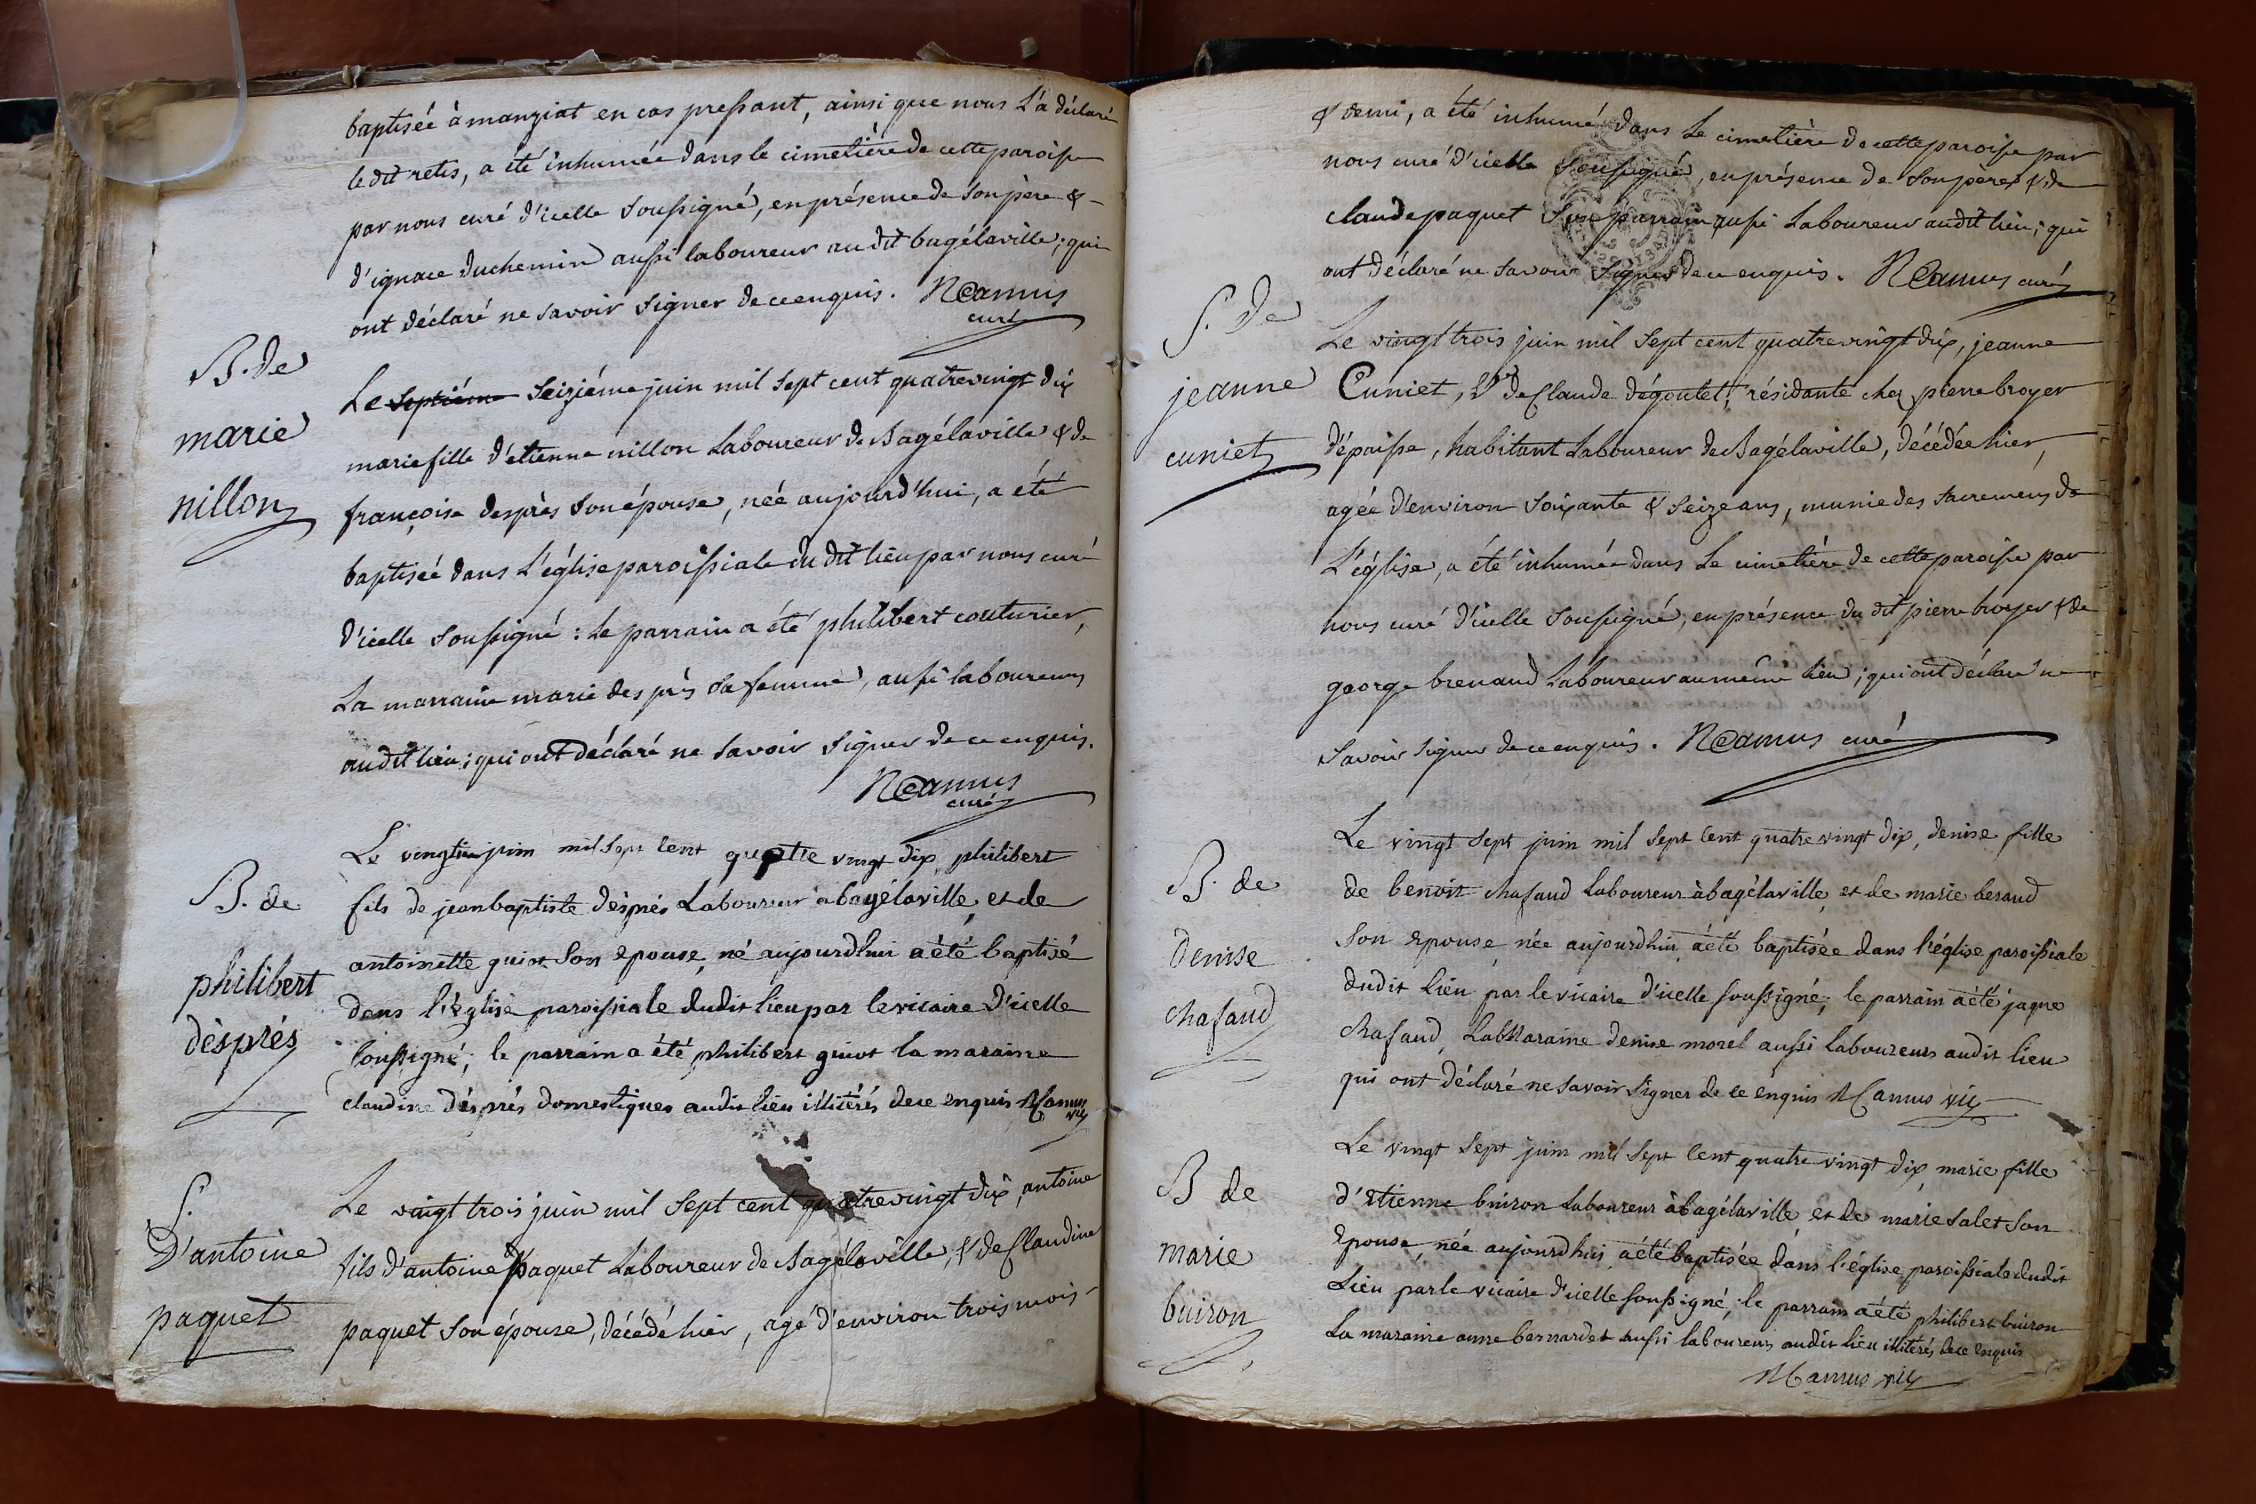 baptisée à manziat en cas pressant, ainsi que nous l'a déclaré
le dit retis, a été inhumée dans le cimetière de cette paroisse
par nous curé d'icelle soussigné, en présence de son père &
d'ignace duchemin aussi laboureur au dit bagélaville; qui
ont déclaré ne savoir signer de ce enquis. NCamus
curé
B. de
marie
nillon
Le septiéme seiziéme juin mil sept cent quatrevingt dix
marie fille d'étienne nillon laboureur de Bagélaville & de
françoise desprès son épouse, née aujourd'hui, a été
baptisée dans l'église paroissiale du dit lieu par nous curé
d'icelle soussigné : le parrain a été philibert couturier,
La marraine marie desprès sa femme, aussi laboureurs
au dit lieu; qui ont déclaré ne savoir signer de ce enquis.
NCamus
curé
B. de
philibert
dèsprés
Le vingt juin mil sept cent quatre vingt dix, philibert
fils de jeanbaptiste dèsprés laboureur à bagélaville, et de
antoinette guiot son epouse, né aujourdhui a été baptisé
dans l'église paroissiale dudit lieu par le vicaire d'icelle
soussigné; le parrain a été philibert guiot la maraine
claudine dèsprés domestiques audit lieu illitérés de ce enquis NCamus
vic
S.
D'antoine
paquet
Le vingt trois juin mil sept cent quatrevingt dix, antoine
fils d'antoine paquet laboureur de Bagélaville, & de Claudine
paquet son épouse, décédé hier, agé d'environ trois mois
& demi, a été inhumé dans le cimetière de cette paroisse par
nous curé d'icelle soussigné, en présence de son père & de
claude paquet son parrain aussi laboureur au dit lieu; qui
ont déclaré ne savoir signer de ce enquis. NCamus curé
S. de
jeanne
cuniet
Le vingt trois juin mil sept cent quatrevingt dix, jeanne
Cuniet, Ve de Claude dégoutet, résidante chez pierre broyer
d'épaisse, habitant laboureur de Bagélaville, décédée hier,
agée d'environ soixante & seize ans, munie des sacremens de
L'église, a été inhumée dans le cimetière de cette paroisse par
nous curé d'icelle soussigné, en présence du dit pierre broyer & de
george brenaud laboureur au même lieu; qui ont déclaré ne
savoir signer de ce enquis. NCamus curé
B. de
denise
chafaud
Le vingt sept juin mil sept cent quatre vingt dix, denise fille
de benoit chafaud laboureur à bagélaville, et de marie beraud
son epouse, née aujourdhui, a été baptisée dans l'église paroissiale
dudit lieu par le vicaire d'icelle soussigné; le parrain a été jaque
chafaud, la Maraine denise morel aussi laboureurs audit lieu
qui ont déclaré ne savoir signer de ce enquis NCamus vic
B de
marie
buiron
Le vingt sept juin mil sept cent quatre vingt dix, marie fille
d'etienne buiron laboureur à bagélaville, et de marie salet son
epouse, née aujourdhui a été baptisée dans l'église paroissiale dudit
Lieu par le vicaire d'icelle soussigné; le parrain a été philibert buiron
La maraine anne bernardet aussi laboureurs audit lieu illitérés de ce enquis
NCamus vic